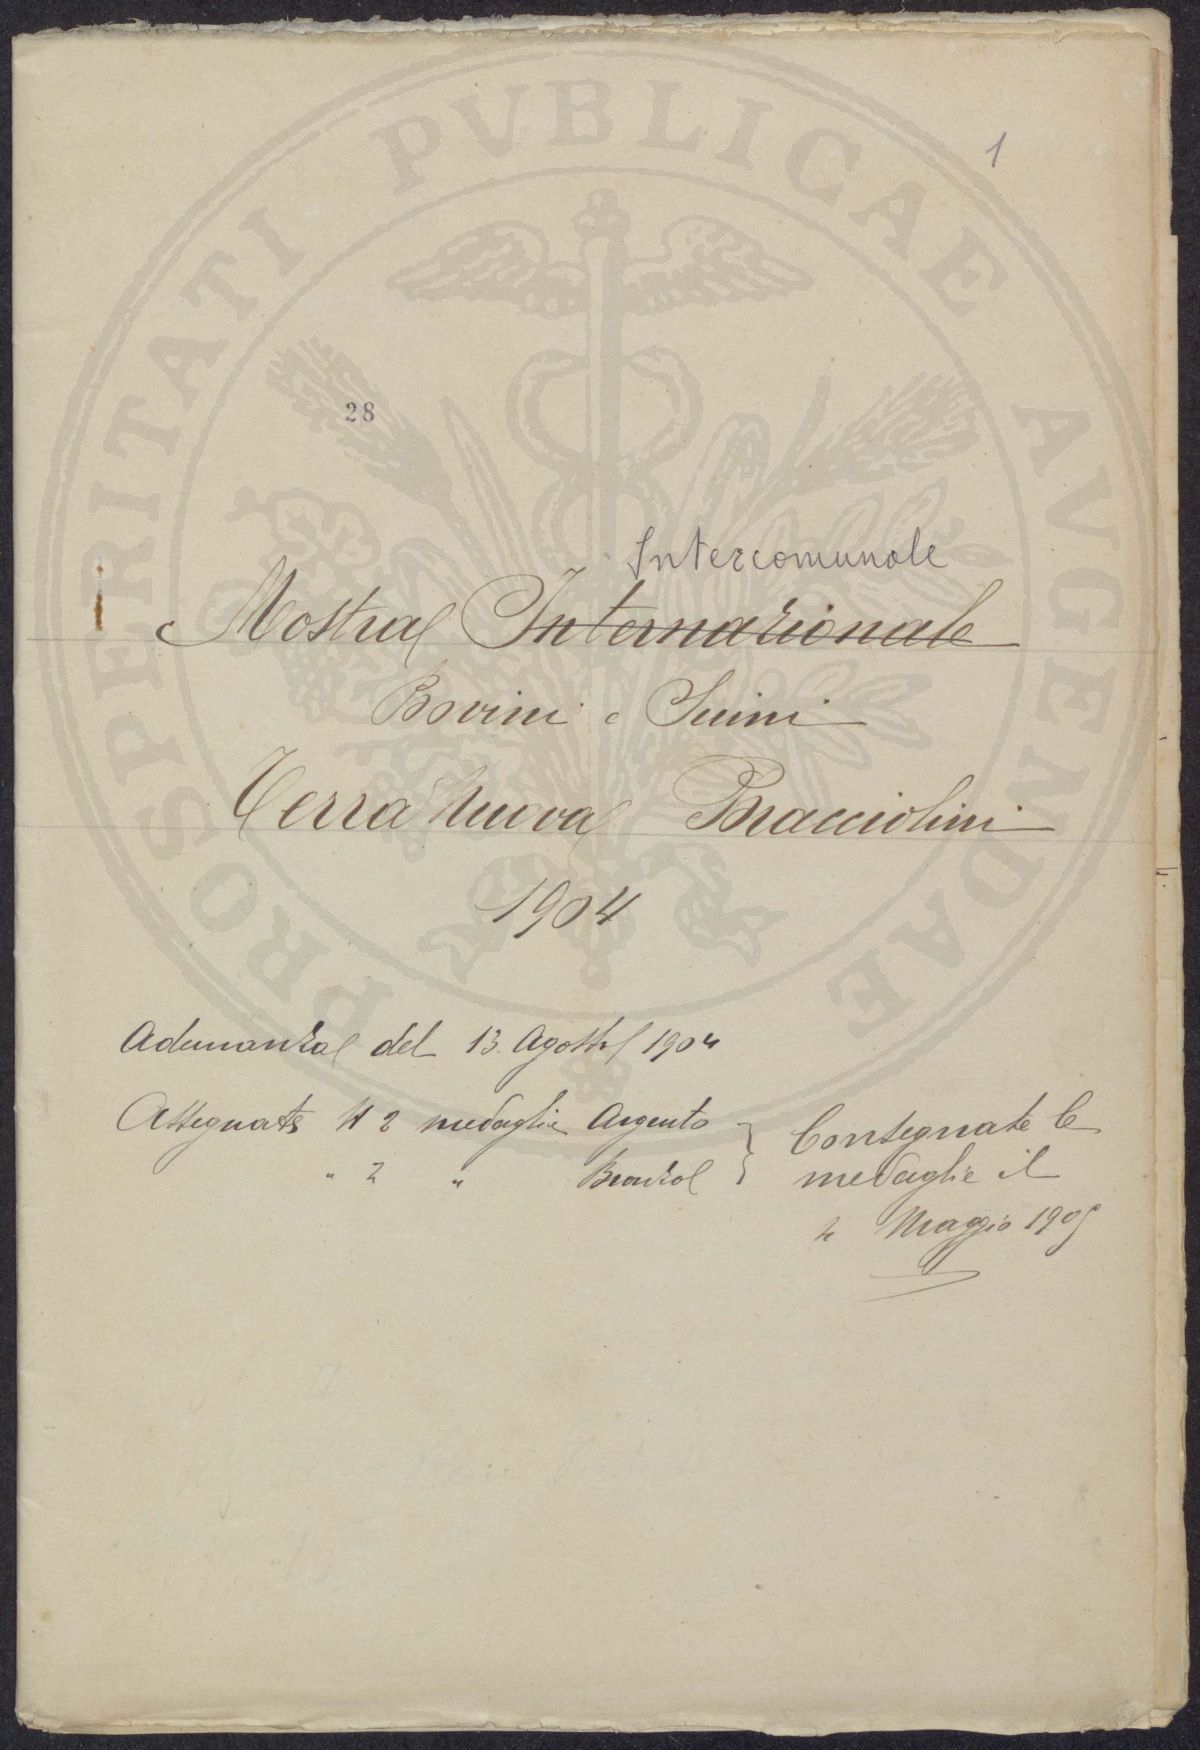 PROSPERITATI PUBLICAE AVGENDAE
1
28
Intercomunale
Mostra Internazionale
Bovini e Suini
Terranuova Bracciolini
1904
Adunanza del 13. Agosto 1904
Assegnate N 2 medaglie Argento } Consegnate le
" 2 " Bronzo } medaglie il
4 Maggio 1905